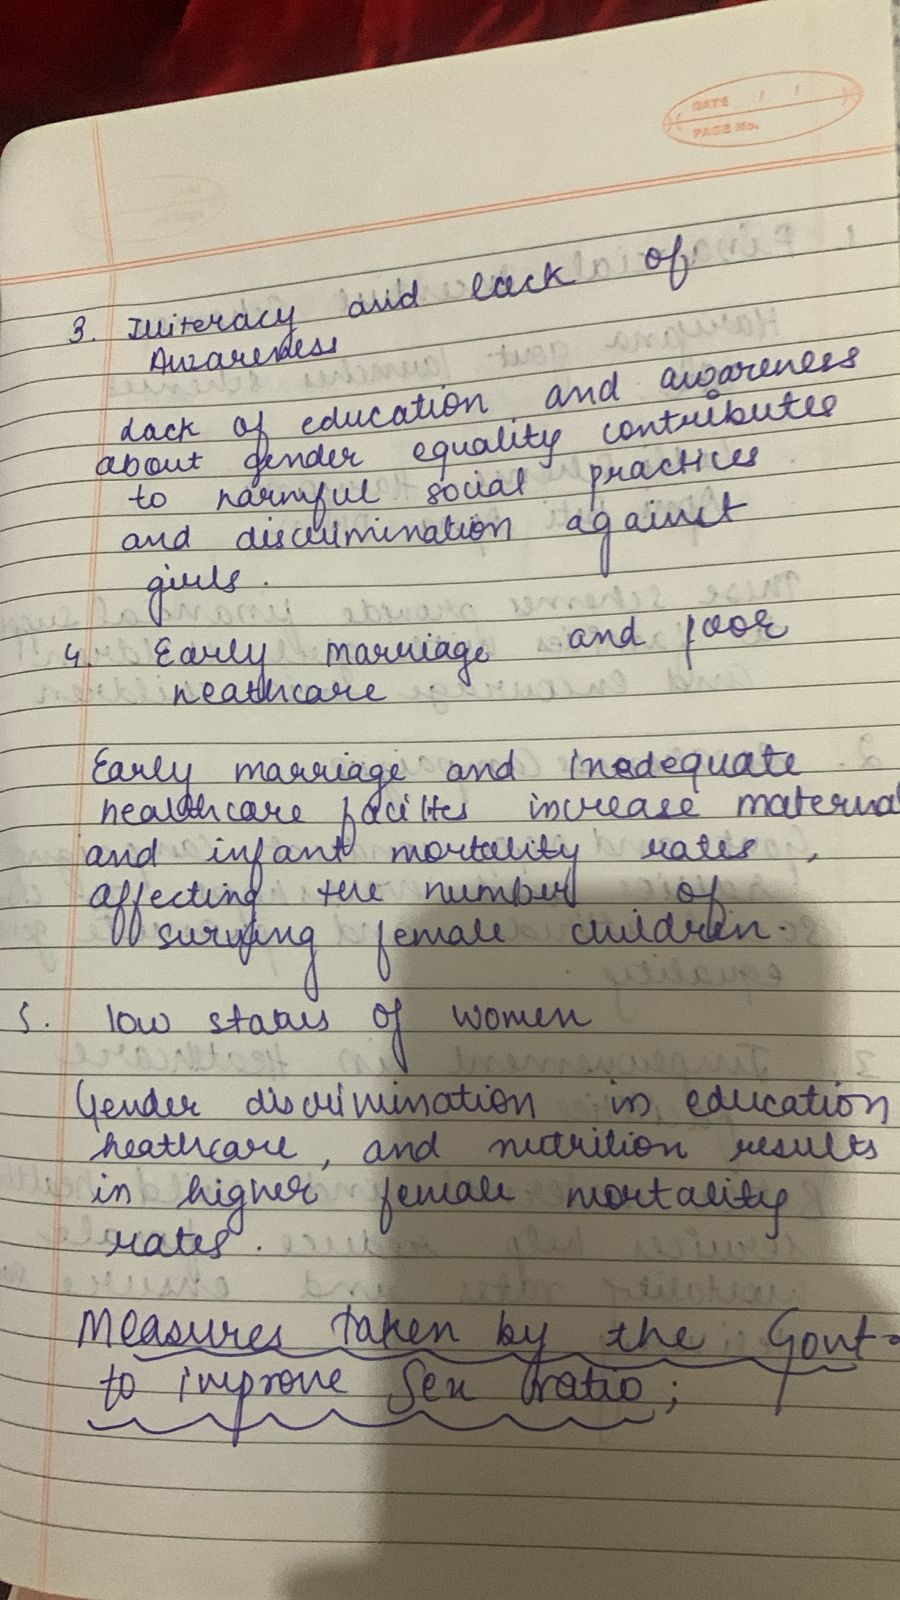 DATE / /
PAGE No.
3. Illiteracy and lack of
Awareness
Lack of education and awareness
about gender equality contributes
to harmful social practices
and discrimination against
girls.
4. Early marriage and poor
heathcare
Early marriage and inadequate
healthcare facilites increase maternal
and infant mortality rates,
affecting the number of
surving female children.
5. low status of women
Gender discrimination in education
heathcare, and nutrition results
in higher female mortality
rates.
Measures taken by the Govt.
to improve Sex ratio;